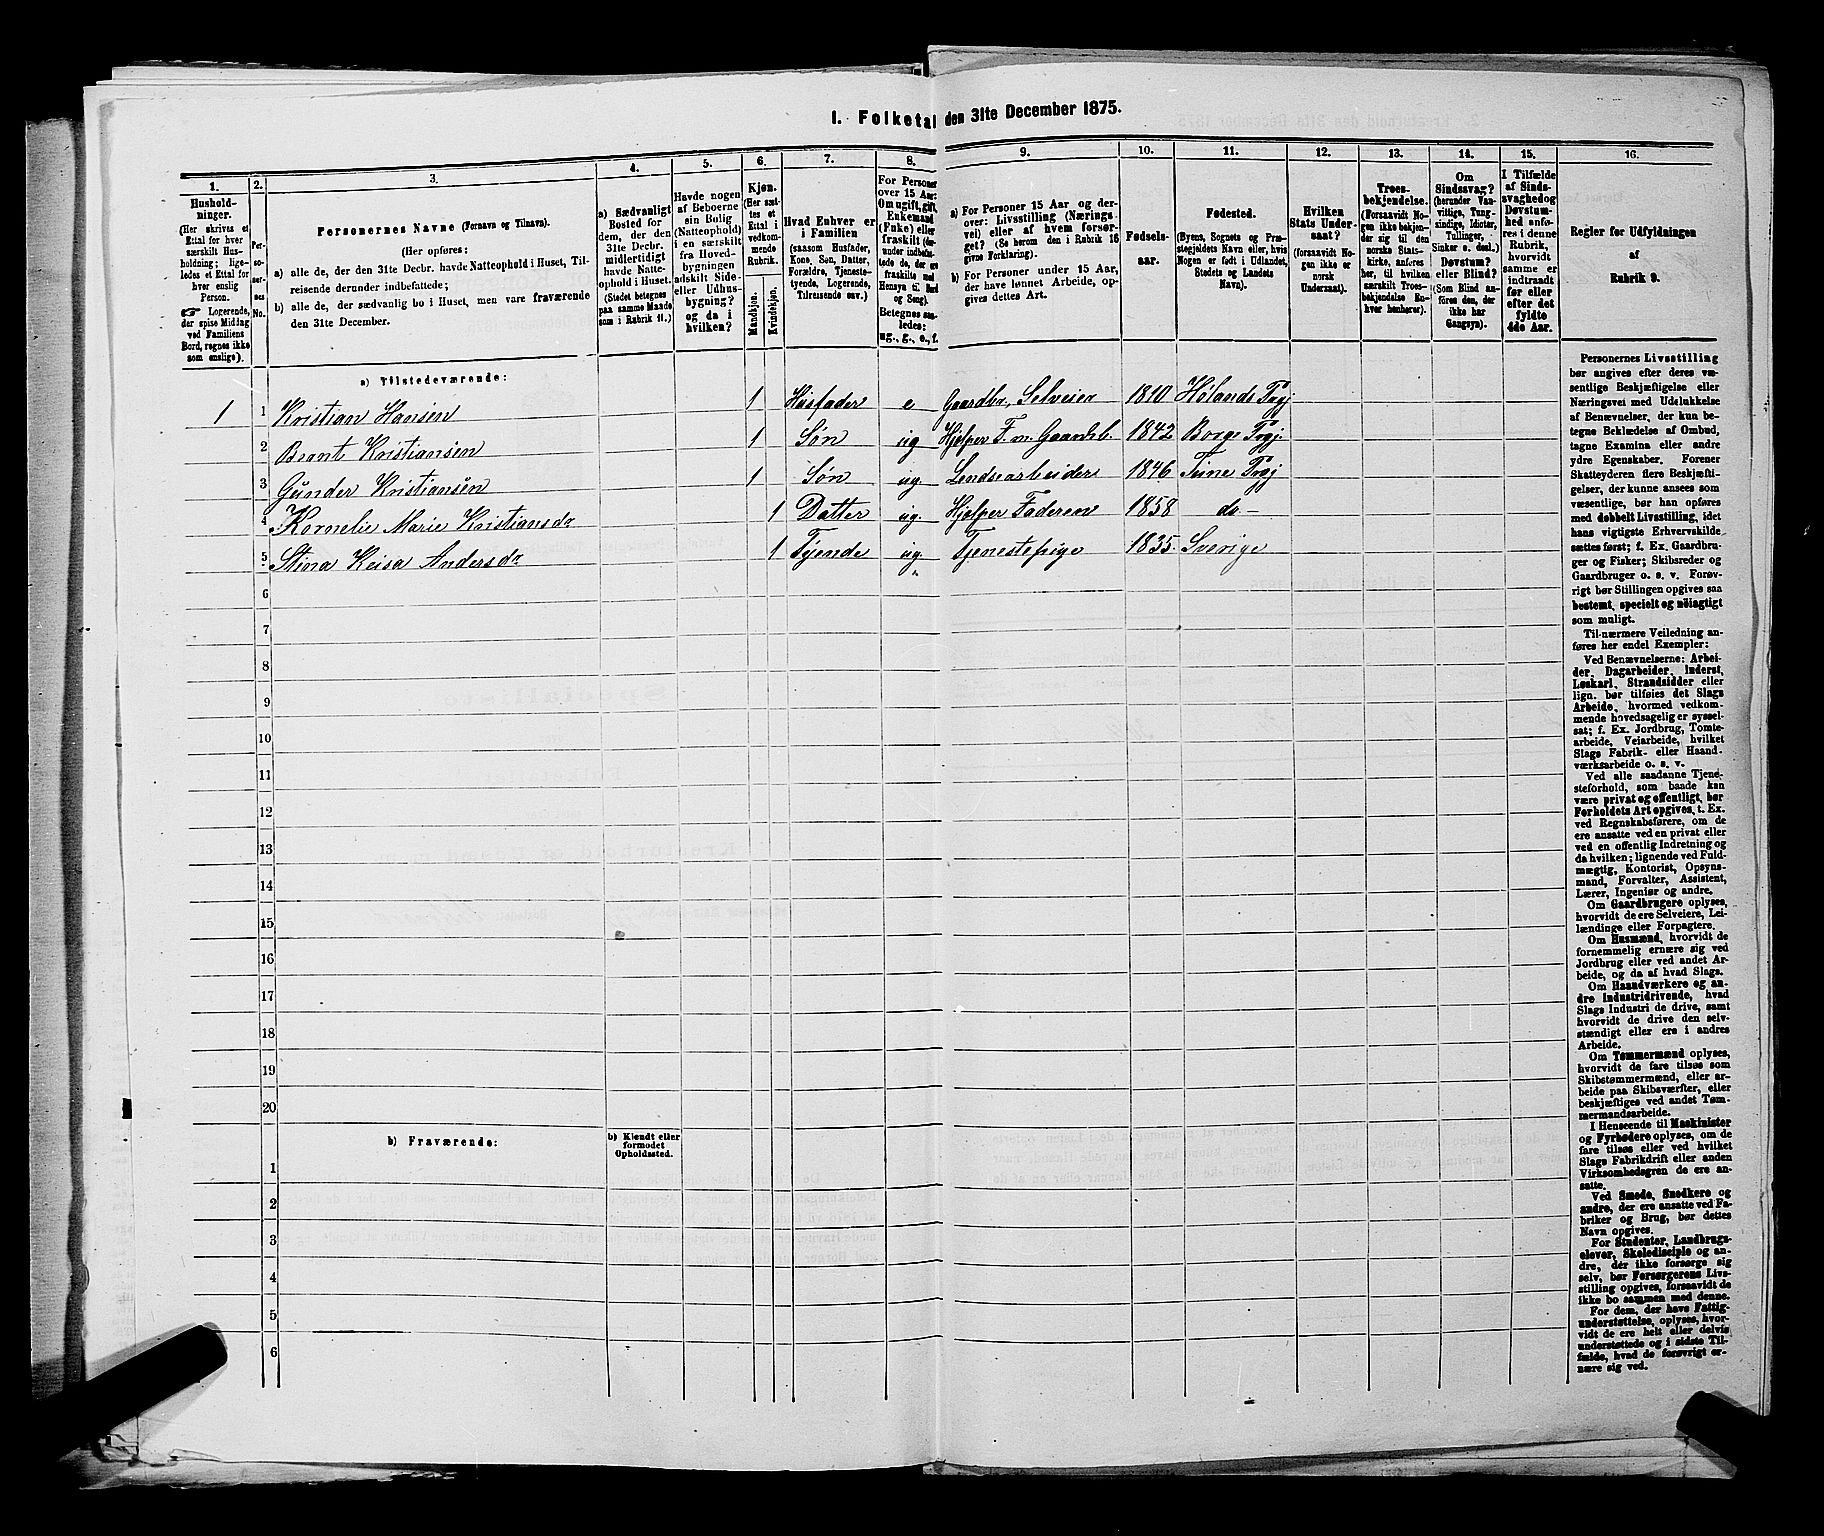 I. Folketal den 31te December 1875.
1. 2. 3. 4. 5. 6. 7. 8. 9. 10. 11. 12. 13. 14. 15. 16.
Hushold-
ninger.
(Her skrives et
Ettal for hver
særskilt Hus-
holdning; lige-
ledes et Ettal for
hver enslig
Person.
☞ Logerende,
der spise Middag
ved Familiens
Bord, regnes ikke
som enslige).
Per-
so-
ner-
nes
No.
Personernes Navne (Fornavn og Tilnavn).
(Her opføres:
a) alle de, der den 31te Decbr. havde Natteophold i Huset, Til-
reisende derunder indbefattede;
b) alle de, der sædvanlig bo i Huset, men vare fraværende
den 31te December.
a) Sædvanligt
Bosted for
dem, der den
31te Decbr.
midlertidigt
havde Natte-
ophold i Huset.
(Stedet betegnes
paa samme Maade
som i Rubrik 11.)
Havde nogen
af Beboerne
sin Bolig
(Natteophold)
i en særskilt
fra Hoved-
bygningen
adskilt Side-
eller Udhus-
bygning?
og da i
hvilken?
Kjøn.
(Her sæt-
tes et
Ettal i
vedkom-
mende
Rubrik.
Mandkjøn.
Kvindekjøn.
Hvad Enhver er
i Familien
(saasom Husfader,
Kone, Søn, Datter,
Forældre, Tjeneste-
tyende, Logerende,
Tilreisende osv.)
For Personer
over 15 Aar:
Om ugift, gift,
Enkemand
(Enke) eller
fraskilt (der-
under indbefat-
tede de, der ere
fraskilte med
Hensyn til Bord
og Seng).
Betegnes saa-
ledes:
ug., g., e., f.
a) For Personer 15 Aar og der-
over: Livsstilling (Nærings-
vei) eller af hvem forsør-
get? (Se herom den i Rubrik 16
givne Forklaring).
b) For Personer under 15 Aar,
der have lønnet Arbeide, op-
gives dettes Art.
Fødsels-
aar.
Fødested.
(Byens, Sognets og Præ-
stegjeldets Navn eller, hvis
Nogen er født i Udlandet,
Stedets og Landets
Navn).
Hvilken
Stats Under-
saat?
(forsaavidt No-
gen ikke er
norsk
Undersaat).
Troes-
bekjendelse.
(Forsaavidt No-
gen ikke bekjen-
der sig til den
norske Stats-
kirke, anføres
her, til hvilken
særskilt Troes-
bekjendelse En-
hver henhører).
Om
Sindssvag?
(herunder Van-
vittige, Tung-
sindige, Idioter,
Tullinger,
Sinker o. desl.)
Døvstum?
eller Blind?
(Som Blind an-
føres den, der
ikke har
Gangsyn).
I Tilfælde
af Sinds-
svaghed og
Døvstum-
hed anfø-
res i denne
Rubrik,
hvorvidt
samme er
indtraadt
før eller
efter det
fyldte
4de Aar.
Regler for Udfyldningen
af
Rubrik 9.
a) Tilstedeværende:
1 1 Kristian Hansen 1 Husfader e Gaardbr. Selveier 1810 Hølands Prgj
2 Brant Kristiansen 1 Søn ug Hjelper F. m. Gaardsb. 1842 Borge Prgj.
3 Gunder Kristiansen 1 Søn ug Lendsearbeider 1846 Tune Prgj
4 Kornelie Marie Kristiansdr 1 Datter ug. Hjelper Faderen 1858 do –
5 Stina Keisa Andersdr 1 Tyende ug Tjenestepige 1835. Sverige
6
7
8
9
10
11
12
13
14
15
16
17
18
19
20
b) Fraværende:
b) Kjendt eller
formodet
Opholdssted.
1
2
3
4
5
6
Personernes Livsstilling
bør angives efter deres væ-
sentlige Beskjæftigelse eller
Næringsvei med Udelukkelse
af Benævnelser, der kun be-
tegne Beklædelse af Ombud,
tagne Examina eller andre
ydre Egenskaber. Forener
Skatteyderen flere Beskjæfti-
gelser, der kunne ansees som
væsentlige, bør han opføres
med dobbelt Livsstilling, idet
hans vigtigste Erhvervskilde
sættes først; f. Ex. Gaardbru-
ger og Fisker; Skibsreder og
Gaardbruger o. s. v. Forøv-
rigt bør Stillingen opgives saa
bestemt, specielt og nøiagtigt
som muligt.
Til nærmere Veiledning an-
føres her endel Exempler:
Ved Benævnelserne: Arbei-
der, Dagarbeider, Inderst,
Løskarl, Strandsidder eller
lign. bør tilføies det Slags
Arbeide, hvormed vedkom-
mende hovedsagelig er syssel-
sat; f. Ex. Jordbrug, Tomte-
arbeide, Veiarbeide, hvilket
Slags Fabrik- eller Haand-
værksarbeide o. s. v.
Ved alle saadanne Tjene-
steforhold, som baade kan
være privat og offentligt, bør
Forholdets Art opgives, t. Ex.
ved Regnskabsførere, om de
ere ansatte ved en privat eller
ved en offentlig Indretning og
da hvilken; lignende ved Fuld-
mægtig, Kontorist, Opsyns-
mand, Forvalter, Assistent,
Lærer, Ingeniør og andre.
Om Gaardbrugere oplyses,
hvorvidt de ere Selveiere, Lei-
lændinge eller Forpagtere.
Om Husmænd, hvorvidt de
fornemmelig ernære sig ved
Jordbrug eller ved andet Ar-
beide, og da af hvad Slags.
Om Haandværkere og an-
dre Industridrivende, hvad
Slags Industri de drive, samt
hvorvidt de drive den selv-
stændigt eller ere i andres
Arbeide.
Om Tømmermænd oplyses,
hvorvidt de fare tilsøs som
Skibstømmermænd, eller ar-
beide paa Skibsværfter, eller
beskjæftiges ved andet Tøm-
mermandsarbeide.
I Henseende til Maskinister
og Fyrbødere oplyses, om de
fare tilsøs eller ved hvilket
Slags Fabrikdrift eller anden
Virksomhedsgren de ere an-
satte.
Ved Smede, Snedkere og
andre, der ere ansatte ved Fa-
briker og Brug, bør dettes
Navn opgives.
For Studenter, Landbrugs-
elever, Skoledisciple og an-
dre, der ikke forsørge sig
selv, bør Forsørgerens Livs-
stilling opgives, forsaavidt de
ikke bo sammen med denne.
For dem, der have Fattig-
understøttelse, oplyses, hvor-
vidt de ere helt eller delvis
understøttede og i sidste Til-
fælde, hvad de forøvrigt er-
nære sig ved.